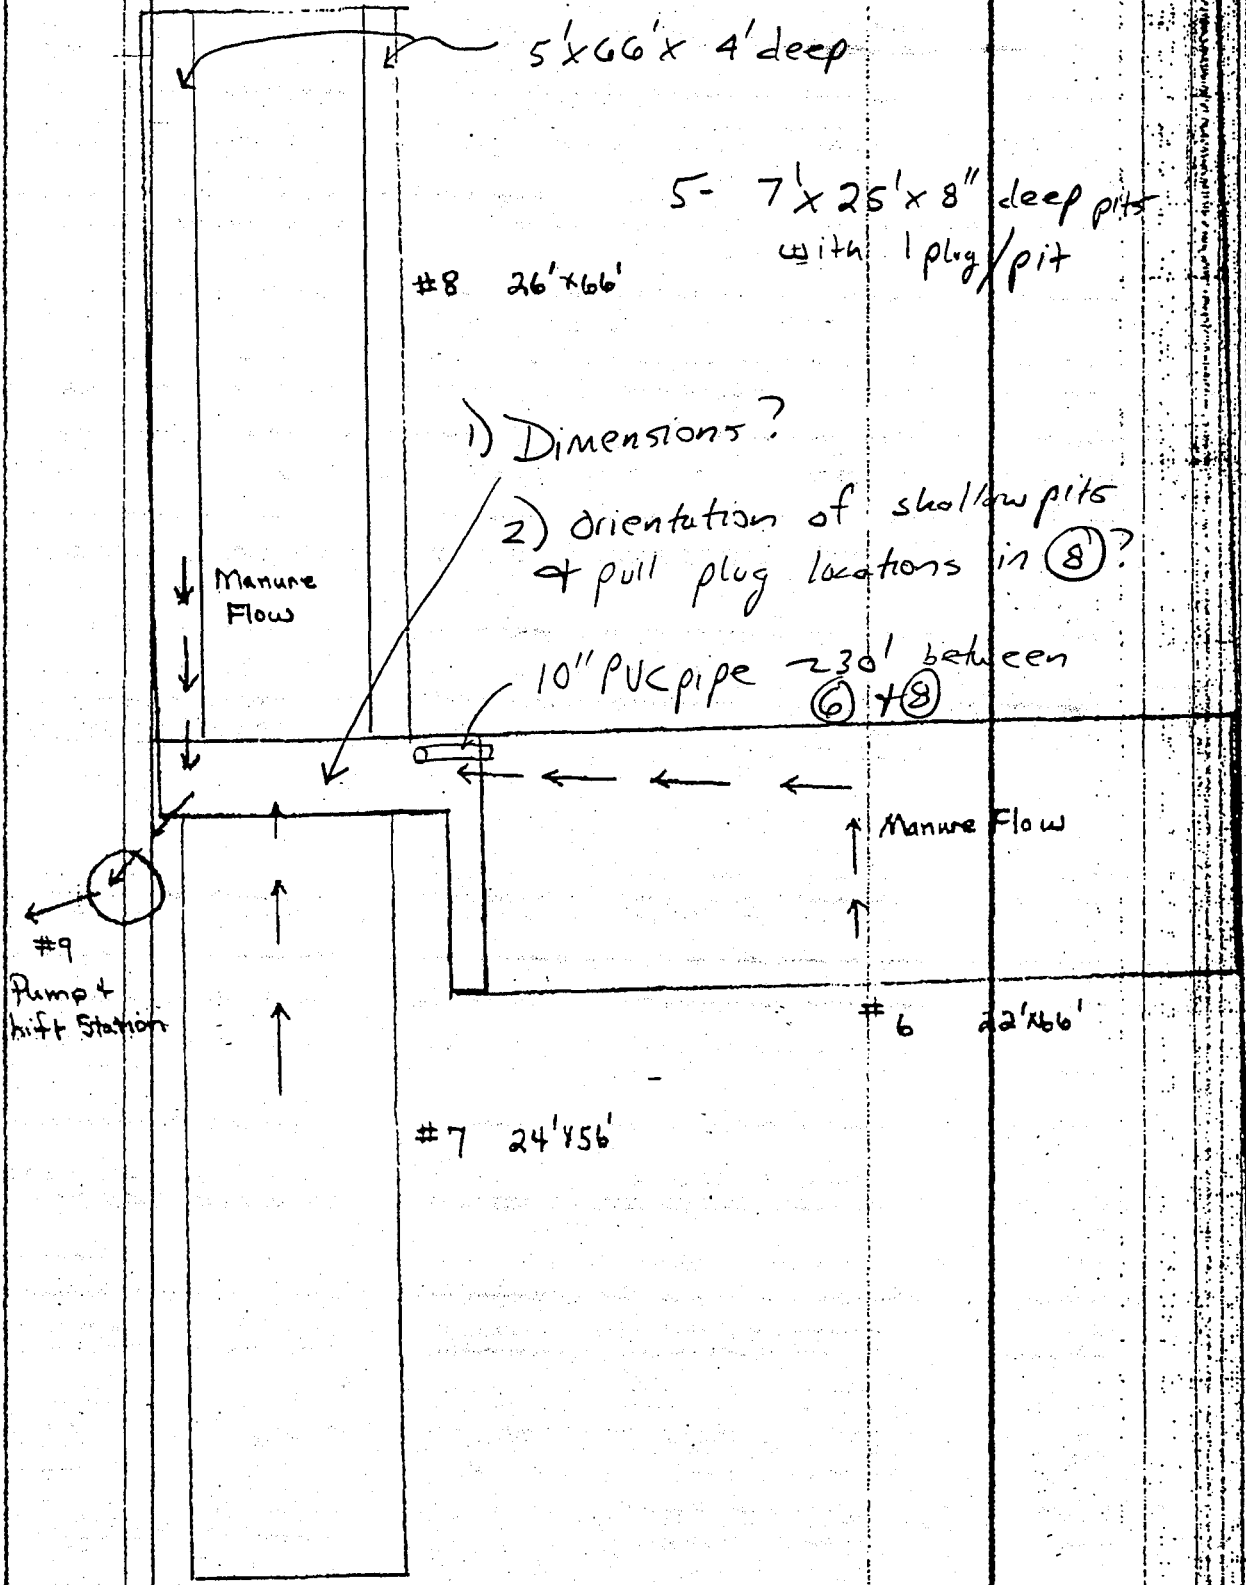 5'x66'x 4' deep
5- 7'x 25'x 8" deep pits
with 1 plug/pit
#8 26'x66'
1) Dimensions?
2) orientation of shallow pits
+ pull plug locations in 8?
Manure
Flow
10" PVC pipe ~30' between
6 + 8
Manure Flow
#9
Pump +
Lift Station
#6 22'x66'
#7 24'x56'